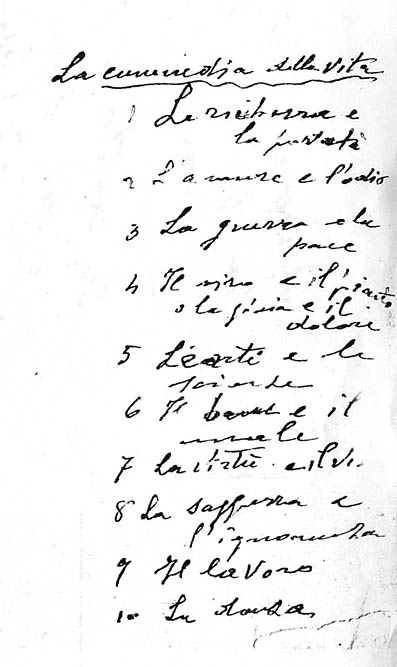 La commedia della vita
1 La ricchezza e
la povertà
2 L'amore e l'odio
3 La guerra e la
pace
4 Il riso e il pianto
o la gioia e il
dolore
5 Le arti e le
scienze
6 Il bene e il
male
7 La virtù e il vi
8 La saggezza e
l'ignoranza
9 Il lavoro
10 La danza